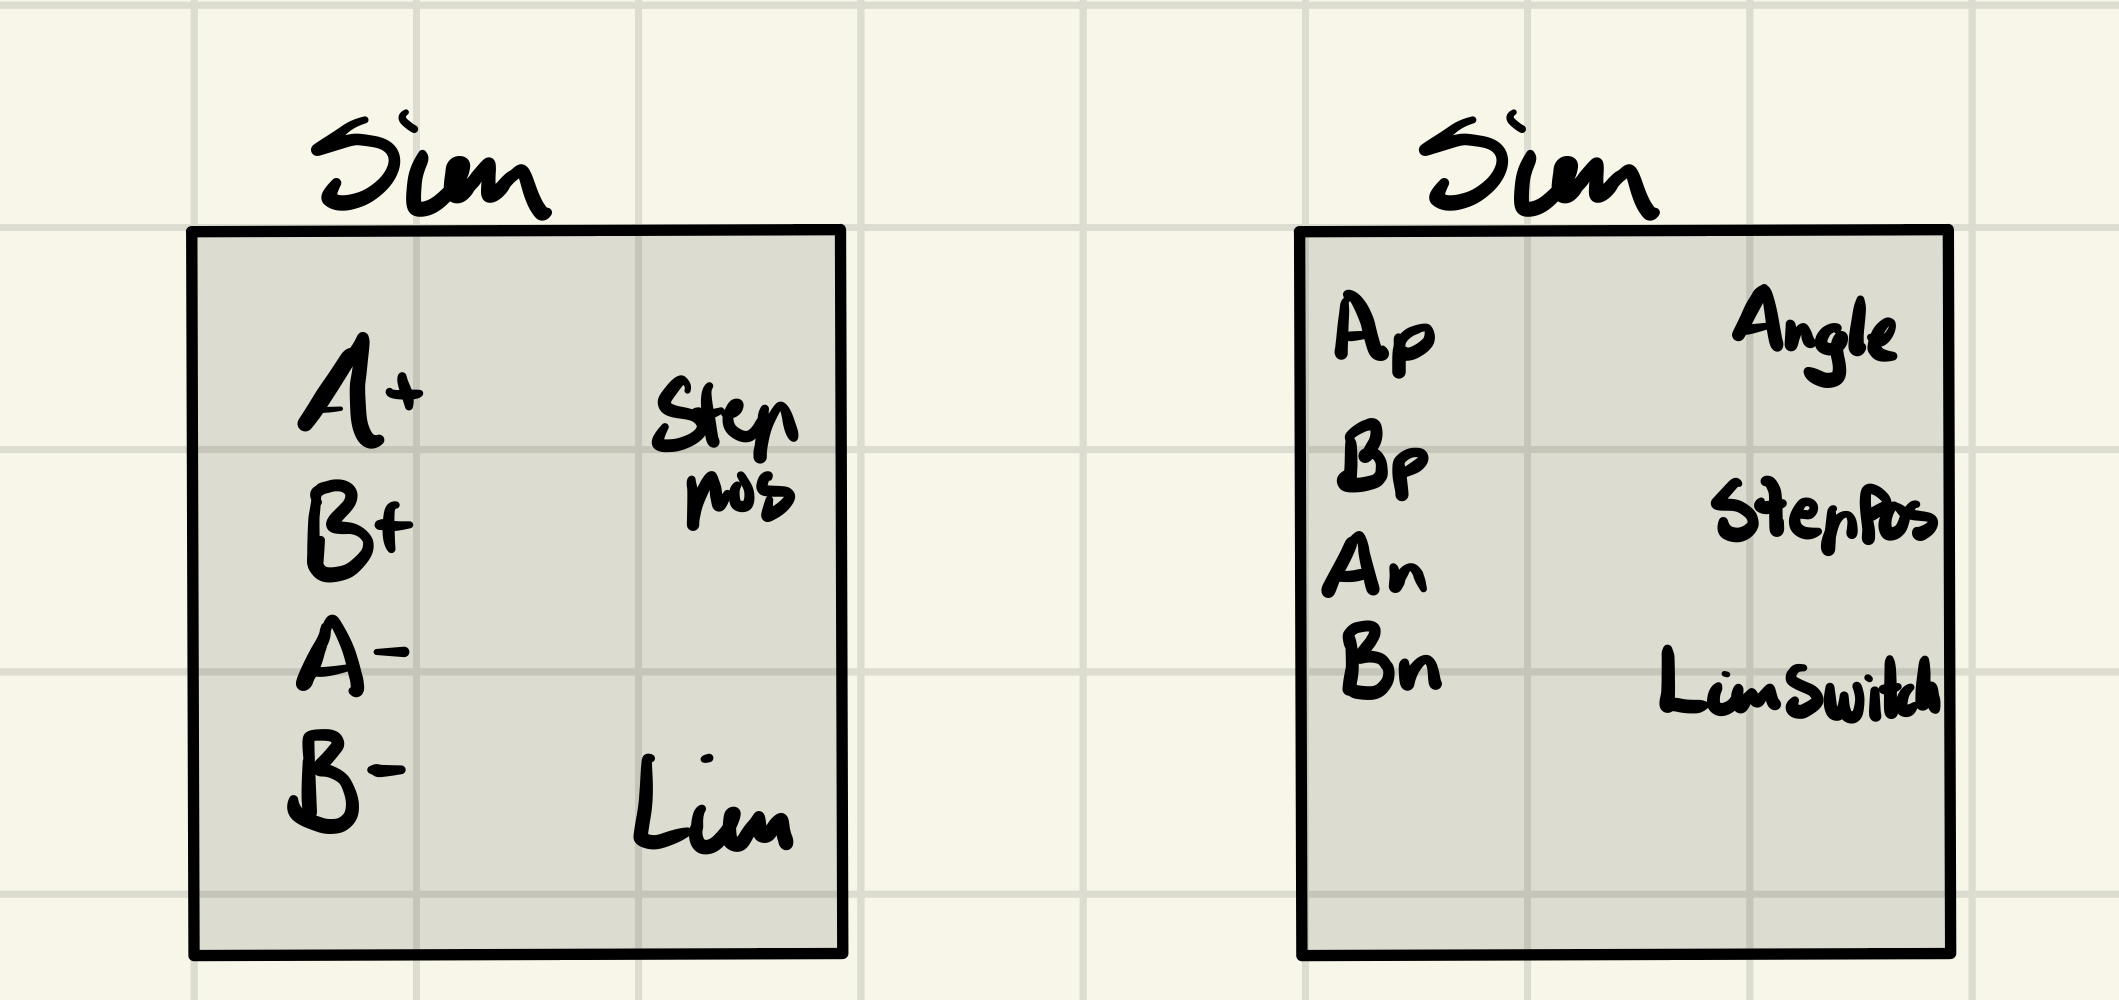 Sim
A+
B+
A-
B-
Step
pos
Lim
Sim
Ap
Bp
An
Bn
Angle
StepPos
LimSwitch